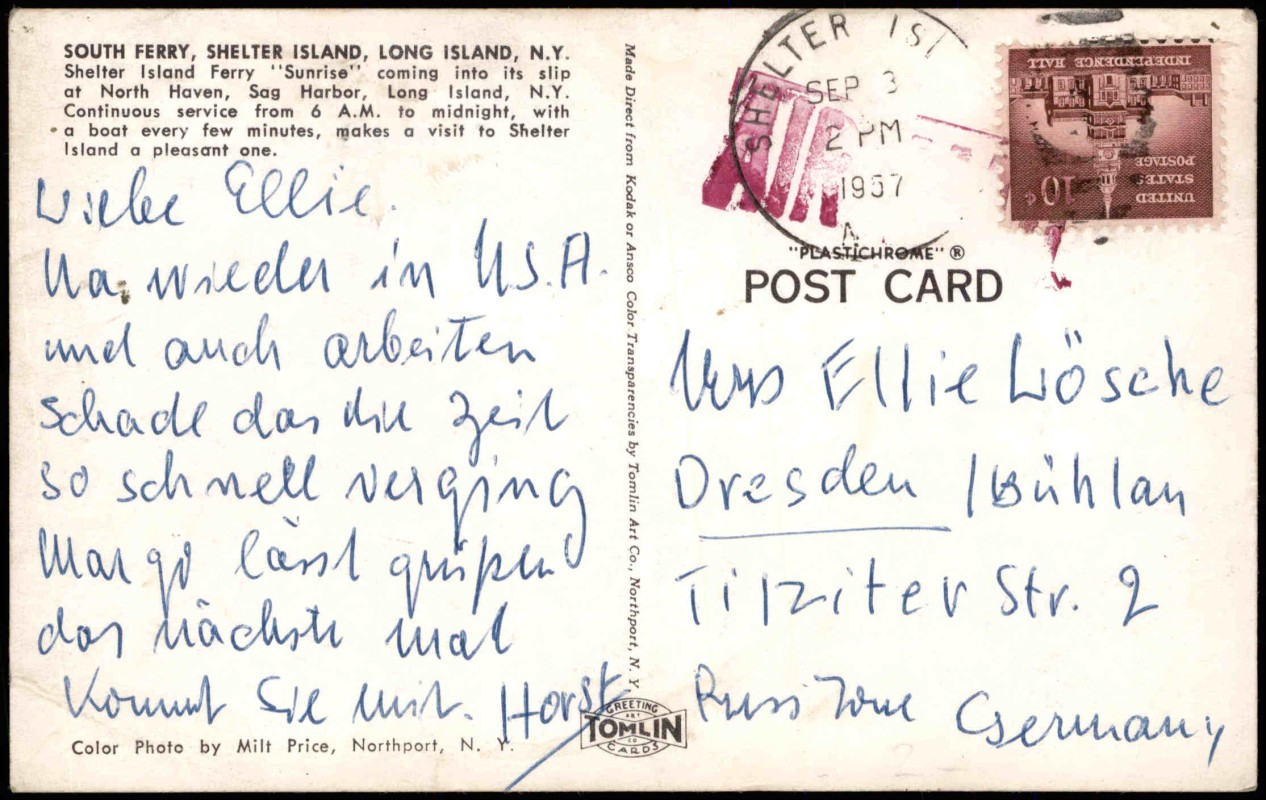 SOUTH FERRY, SHELTER ISLAND, LONG ISLAND, N.Y.
Shelter Island Ferry "Sunrise" coming into its slip
at North Haven, Sag Harbor, Long Island, N.Y.
Continuous service from 6 A.M. to midnight, with
a boat every few minutes, makes a visit to Shelter
Island a pleasant one.
Liebe Ellie.
Na wieder in U.S.A.
und auch arbeiten
schade das die Zeit
so schnell verging
Margo lässt grüßen
das nächste mal
kommt Sie mit. Horst
Color Photo by Milt Price, Northport, N. Y.
Made Direct from Kodak or Ansco Color Transparencies by Tomlin Art Co., Northport, N. Y.
GREETING
ART
TOMLIN
CO
CARDS
SHELTER ISL
SEP 3
2 PM
1957
INDEPENDENCE HALL
10¢
UNITED
STATES
POSTAGE
"PLASTICHROME" ®
POST CARD
Mrs Ellie Lösche
Dresden / Bühlau
Tilziter Str. 2
Russ Zone Germany